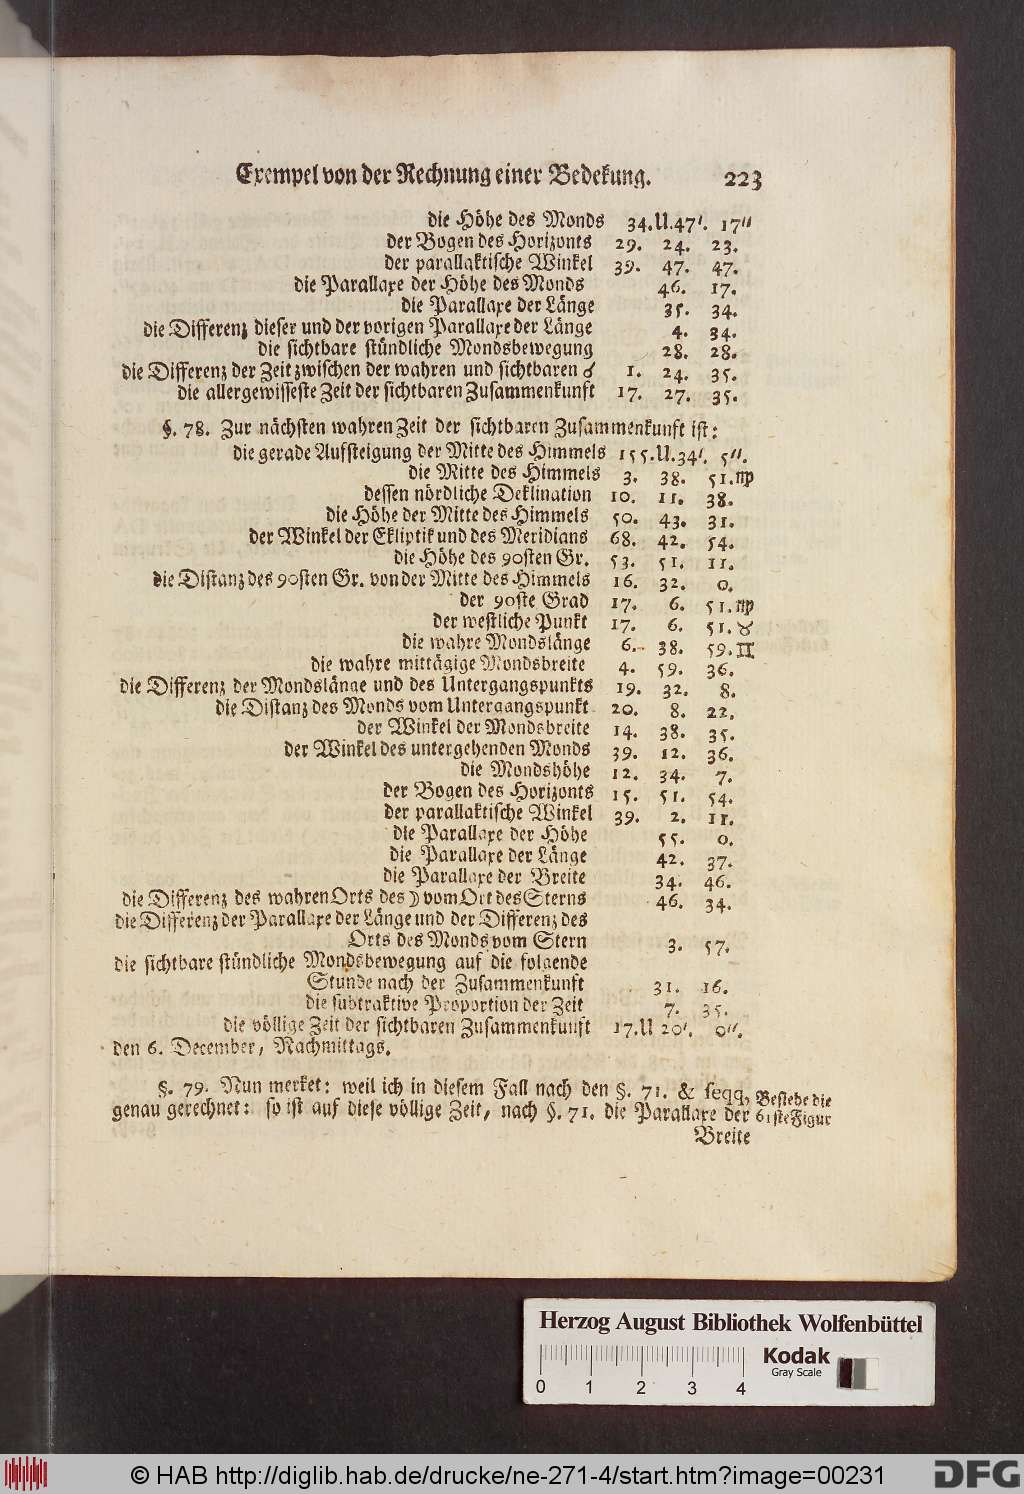 Exempel von der Rechnung einer Bedekung. 223
die Höhe des Monds 34.U.47'. 17''
der Bogen des Horizonts 29. 24. 23.
der parallaktische Winkel 39. 47. 47.
die Parallaxe der Höhe des Monds 46. 17.
die Parallaxe der Länge 35. 34.
die Differenz dieser und der vorigen Parallaxe der Länge 4. 34.
die sichtbare stündliche Mondsbewegung 28. 28.
die Differenz der Zeit zwischen der wahren und sichtbaren ☌ 1. 24. 35.
die allergewisseste Zeit der sichtbaren Zusammenkunft 17. 27. 35.
§. 78. Zur nächsten wahren Zeit der sichtbaren Zusammenkunft ist:
die gerade Aufsteigung der Mitte des Himmels 155.U.34'. 5''.
die Mitte des Himmels 3. 38. 51.♍
dessen nördliche Deklination 10. 11. 38.
die Höhe der Mitte des Himmels 50. 43. 31.
der Winkel der Ekliptik und des Meridians 68. 42. 54.
die Höhe des 90sten Gr. 53. 51. 11.
die Distanz des 90sten Gr. von der Mitte des Himmels 16. 32. 0.
der 90ste Grad 17. 6. 51.♍
der westliche Punkt 17. 6. 51.♉
die wahre Mondslänge 6. 38. 59.♊
die wahre mittägige Mondsbreite 4. 59. 36.
die Differenz der Mondslänge und des Untergangspunkts 19. 32. 8.
die Distanz des Monds vom Untergangspunkt 20. 8. 22.
der Winkel der Mondsbreite 14. 38. 35.
der Winkel des untergehenden Monds 39. 12. 36.
die Mondshöhe 12. 34. 7.
der Bogen des Horizonts 15. 51. 54.
der parallaktische Winkel 39. 2. 11.
die Parallaxe der Höhe 55. 0.
die Parallaxe der Länge 42. 37.
die Parallaxe der Breite 34. 46.
die Differenz des wahren Orts des ☽ vom Ort des Sterns 46. 34.
die Differenz der Parallaxe der Länge und der Differenz des
Orts des Monds vom Stern 3. 57.
die sichtbare stündliche Mondsbewegung auf die folgende
Stunde nach der Zusammenkunft 31. 16.
die subtraktive Proportion der Zeit 7. 35.
die völlige Zeit der sichtbaren Zusammenkunft 17.U 20'. 0''.
den 6. December, Nachmittags.
§. 79. Nun merket: weil ich in diesem Fall nach den §. 71. & seqq. Besiehe die
genau gerechnet: so ist auf diese völlige Zeit, nach §. 71. die Parallaxe der 61ste Figur
Breite
Herzog August Bibliothek Wolfenbüttel
Kodak
Gray Scale
0 1 2 3 4
© HAB http://diglib.hab.de/drucke/ne-271-4/start.htm?image=00231
DFG